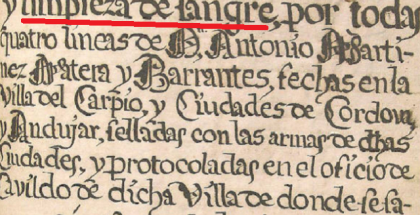 y limpieza de sangre, por toda
quatro lineas de D. Antonio Marti-
nez Matera y Barrantes, fechas en la
Villa del Carpio, y Ciudades de Cordova
y Andujar, selladas con las armas de dhas
Ciudades, y protocoladas en el oficio de
Cavildo de dicha Villa de donde se sa-